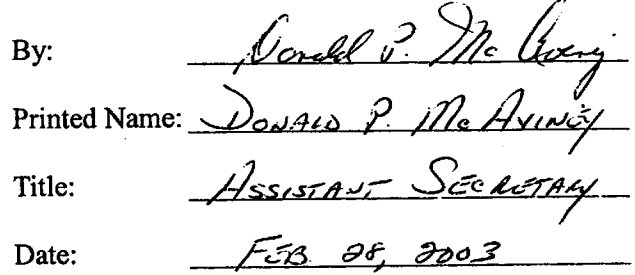 By: Donald P. McAviney
Printed Name: DONALD P. McAVINEY
Title: ASSISTANT SECRETARY
Date: FEB 28, 2003